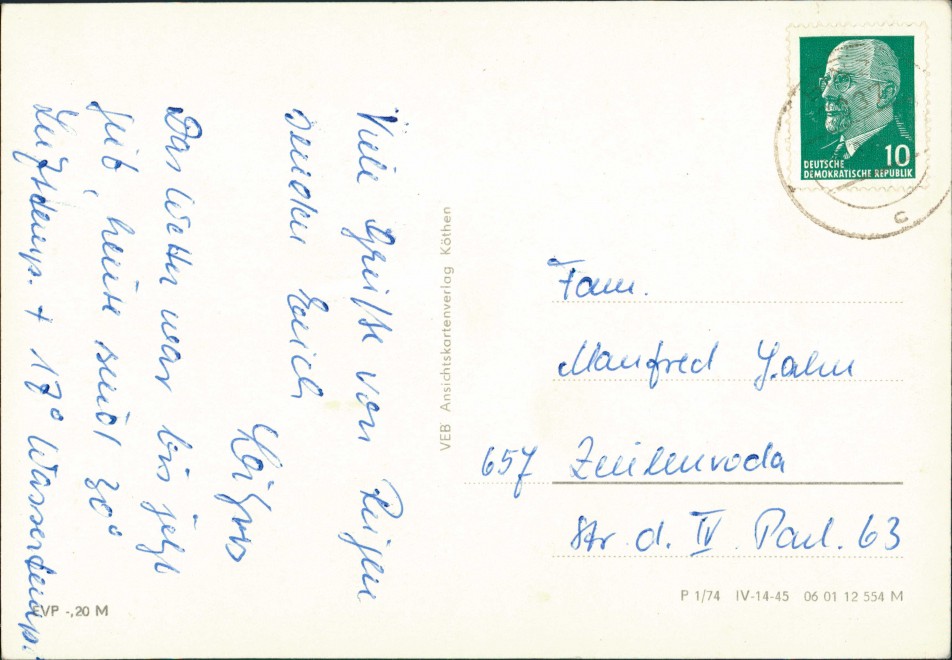 Viele Grüße von
senden Euch
Das Wetter war bis jetzt
gut, heute sind 30°
Lufttemp. + 17° Wassertemp.
VEB Ansichtskartenverlag Köthen
EVP -,20 M
DEUTSCHE
DEMOKRATISCHE REPUBLIK
10
C
Fam.
Manfred Jahn
657 Zeulenroda
Str. d. IV. Part. 63
P 1/74 IV-14-45 06 01 12 554 M